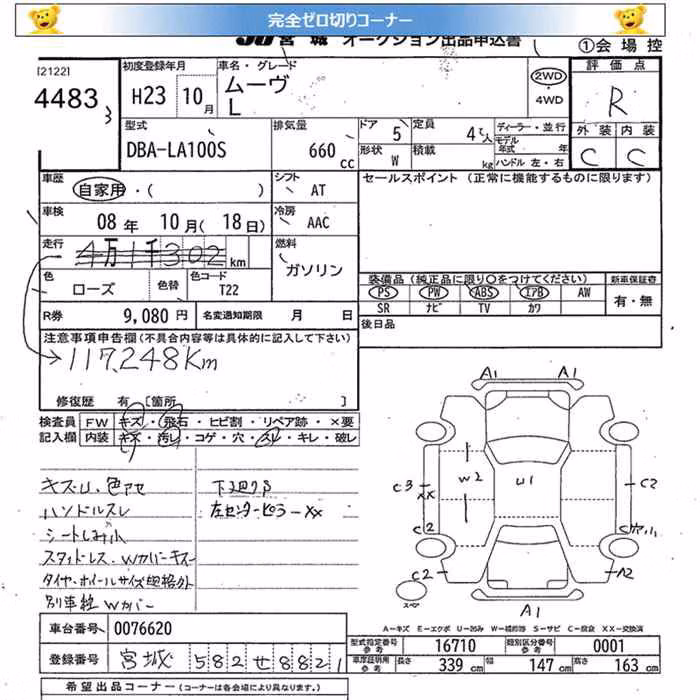 完全ゼロ切りコーナー
JU 宮城 オークション出品申込書
①会場控
[2122]
4483
3
初度登録年月
H23 10月
車名・グレード
ムーヴ
L
2WD
4WD
評価点
R
外装 内装
C C
型式
DBA-LA100S
排気量
660 cc
ドア 5
定員 4人
ディーラー・並行
モデル年式 年
形状 W
積載 kg
ハンドル 左・右
車歴
自家用・( )
シフト
AT
セールスポイント (正常に機能するものに限ります)
車検
08年 10月(18日)
冷房
AAC
走行
4万1千302 km
燃料
ガソリン
色
ローズ
色替
色コード
T22
装備品(純正品に限り○をつけてください)
新車保証書
PS PW ABS エアB AW
有・無
SR ナビ TV カワ
R券 9,080円
名変通知期限 月 日
後日品
注意事項申告欄(不具合内容等は具体的に記入して下さい)
117,248Km
修復歴 有 [箇所 ]
検査員
記入欄
FW キズ・飛石・ヒビ割・リペア跡・×要
内装 キズ・汚レ・コゲ・穴・スレ・キレ・破レ
A1 A1
C3
XX
W2
U1
C2
C2
C2
A2
スペア
A1
キズU、色アセ
ハンドルスレ
シートしみ小
スタッドレス、Wカバーキズ
タイヤ・ホイールサイズ規格外
別車種Wカバー
下廻りS
左センターピラーXX
A−キズ E−エクボ U−凹み W−補修跡 S−サビ C−腐食 XX−交換済
車台番号 0076620
登録番号 宮城 582せ8821
型式指定番号 参考 16710
類別区分番号 参考 0001
車庫証明用 参考 長さ 339 cm 幅 147 cm 高さ 163 cm
希望出品コーナー (コーナーは各会場により異なります。)